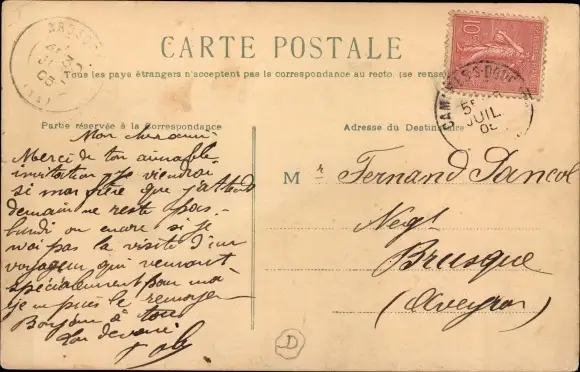 CARTE POSTALE
Tous les pays étrangers n'acceptent pas la correspondance au recto. (se rense
Partie réservée à la Correspondance
Adresse du Destinataire
Mon cher ami
Merci de ton aimable
invitation je viendrai
si mon père que j'attends
demain ne reste pas
lundi ou encore si je
n'ai pas la visite d'un
voyageur qui
spécialement pour moi
je puis le renvoyer
Bonjour à tous
Ton dévoué
Mr Fernand Pancol
Negt
Brusque
(Aveyron)
10
5
JUIL
05
D